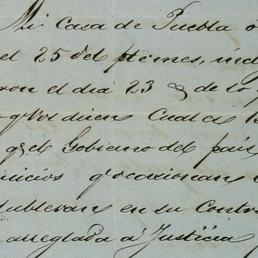 Mi Casa de Puebla
el 25 del ptmes, ind
ron el dia 23 de to
y los dicen Cual es
q. el Gobierno del país
uicios q. ocasionan
subleван en su Contr
arreglada a Justicia y